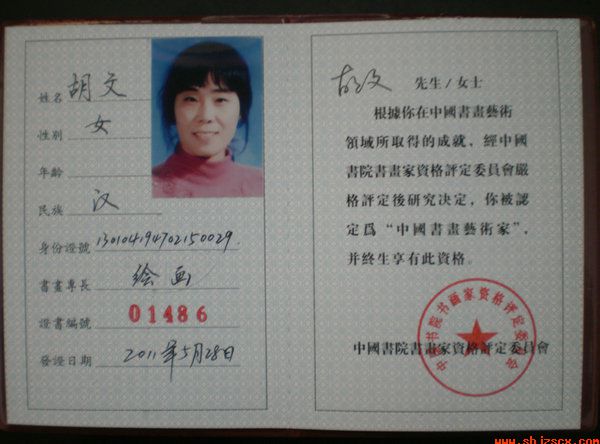 姓名 胡文
性别 女
年龄
民族 汉
身份證號 130104194702150029.
書畫專長 绘画
證書編號 01486
發證日期 2011年5月28日
胡文 先生/女士
根據你在中國書畫藝術
領域所取得的成就，經中國
書院書畫家資格評定委員會嚴
格評定後研究決定，你被認
定爲“中國書畫藝術家”，
并终生享有此資格。
中國書院書畫家資格評定委員會
中国书院书画家资格评定委员会
www.shjzscx.com